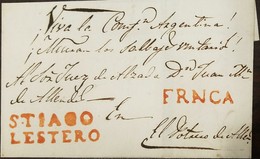 ¡Viva la Conf.n Argentina!
¡Mueran los Salvajes unitarios!
Al Sor. Juez de Alzada Dn. Juan Ma.
de Allende
En
FRNCA
STIAGO
LESTERO
El Potrero de